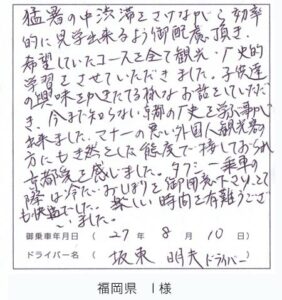 猛暑の中渋滞をさけながら効率
的に見学出来るよう御配慮頂き、
希望していたコースを全て観光・歴史的
学習をさせていただきました。子供達
の興味をかきたてる様なお話をしていただ
き、今まで知らない京都の歴史を学ぶ事が
出来ました。マナーの悪い外国人観光客の
方にもき然とした態度で接しておられ
京都愛を感じました。タクシー乗車の
際は冷たいおしぼりを御用意下さり、とて
も快適でした。楽しい時間を有難うござ
いました。
御乗車年月日 ( 27年 8月 10日 )
ドライバー名 ( 坂東 明夫ドライバー )
福岡県 I様